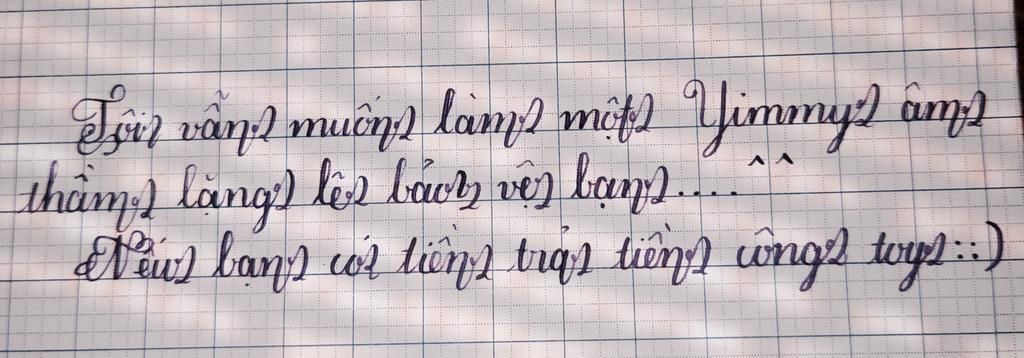 Tôi vẫn muốn làm một Yimmy âm
thầm lặng lẽ bảo vệ bạn.... ^^
Nếu bạn có tiền trả tiền công toy::)